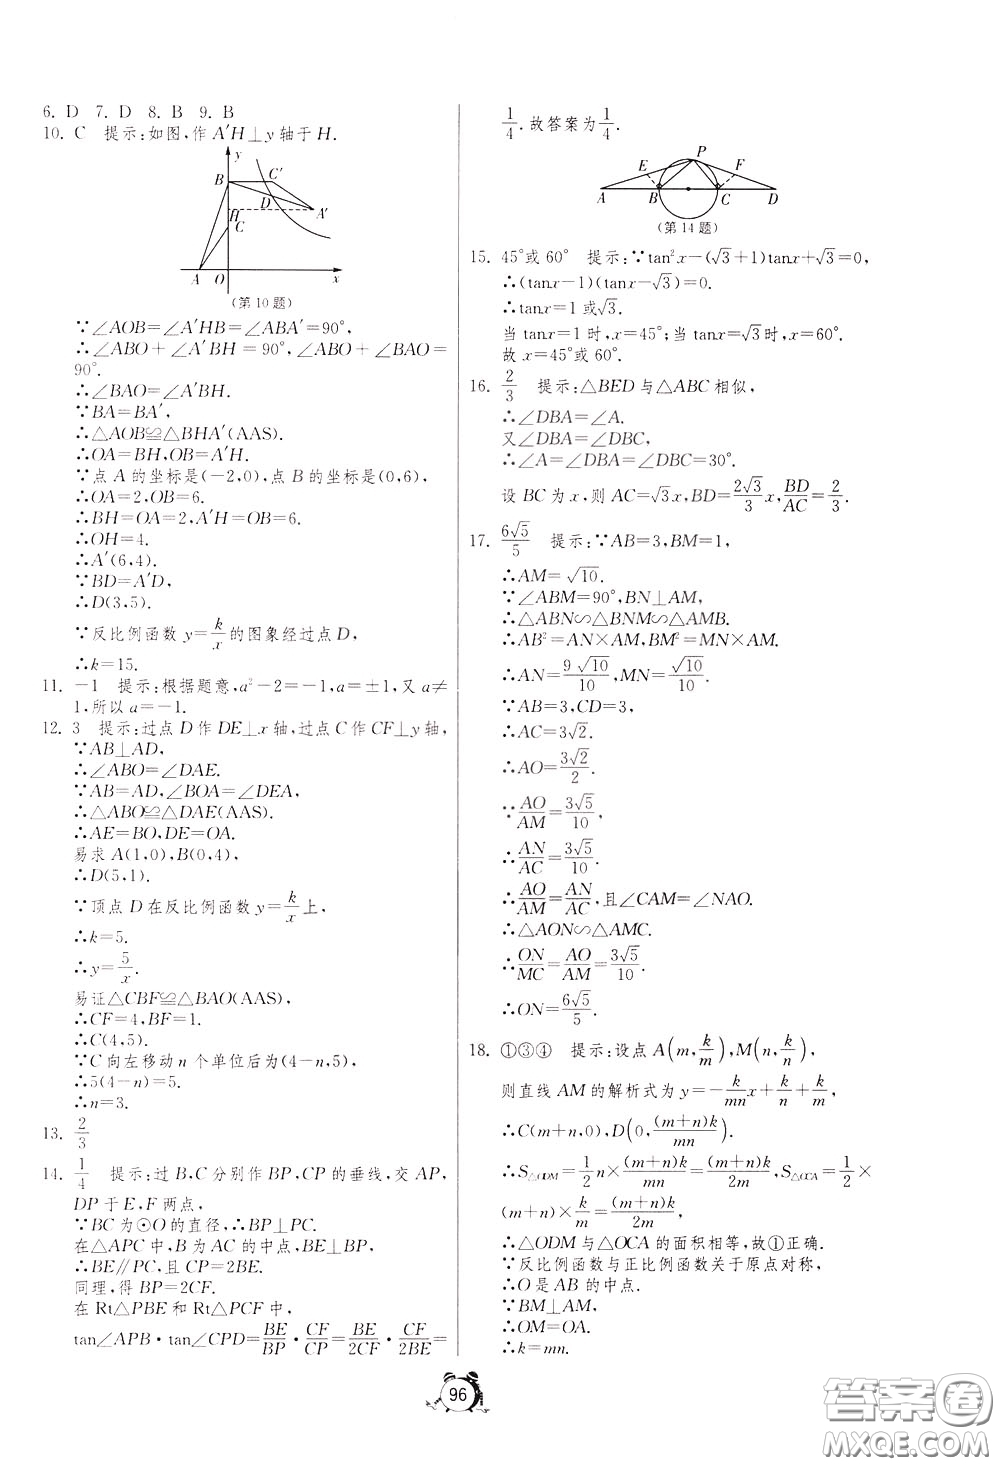 6. D　7. D　8. B　9. B
10. C　提示:如图,作 A′H⊥y 轴于 H.
y
B
C′
D
H
A′
C
A
O
x
(第 10 题)
∵∠AOB=∠A′HB=∠ABA′=90°,
∴∠ABO+∠A′BH=90°,∠ABO+∠BAO=
90°.
∴∠BAO=∠A′BH.
∵BA=BA′,
∴△AOB≌△BHA′(AAS).
∴OA=BH,OB=A′H.
∵点 A 的坐标是(-2,0),点 B 的坐标是(0,6),
∴OA=2,OB=6.
∴BH=OA=2,A′H=OB=6.
∴OH=4.
∴A′(6,4).
∵BD=A′D,
∴D(3,5).
∵反比例函数 y=k/x 的图象经过点 D,
∴k=15.
11. -1　提示:根据题意,a²-2=-1,a=±1,又 a≠
1,所以 a=-1.
12. 3　提示:过点 D 作 DE⊥x 轴,过点 C 作 CF⊥y 轴,
∵AB⊥AD,
∴∠ABO=∠DAE.
∵AB=AD,∠BOA=∠DEA,
∴△ABO≌△DAE(AAS).
∴AE=BO,DE=OA.
易求 A(1,0),B(0,4),
∴D(5,1).
∵顶点 D 在反比例函数 y=k/x 上,
∴k=5.
∴y=5/x.
易证△CBF≌△BAO(AAS),
∴CF=4,BF=1.
∴C(4,5).
∵C 向左移动 n 个单位后为(4-n,5),
∴5(4-n)=5.
∴n=3.
13. 2/3
14. 1/4　提示:过 B,C 分别作 BP,CP 的垂线,交 AP,
DP 于 E,F 两点,
∵BC 为⊙O 的直径,∴BP⊥PC.
在△APC 中,B 为 AC 的中点,BE⊥BP,
∴BE∥PC,且 CP=2BE.
同理,得 BP=2CF.
在 Rt△PBE 和 Rt△PCF 中,
tan∠APB·tan∠CPD=BE/BP·CF/CP=BE/2CF·CF/2BE=
1/4.故答案为1/4.
P
E
F
A
B
C
D
(第 14 题)
15. 45°或 60°　提示:∵tan²x-(√3+1)tanx+√3=0,
∴(tanx-1)(tanx-√3)=0.
∴tanx=1 或√3.
当 tanx=1 时,x=45°;当 tanx=√3时,x=60°.
故 x=45°或 60°.
16. 2/3　提示:△BED 与△ABC 相似,
∴∠DBA=∠A.
又∠DBA=∠DBC,
∴∠A=∠DBA=∠DBC=30°.
设 BC 为 x,则 AC=√3x,BD=2√3/3x,BD/AC=2/3.
17. 6√5/5　提示:∵AB=3,BM=1,
∴AM=√10.
∵∠ABM=90°,BN⊥AM,
∴△ABN∽△BNM∽△AMB.
∴AB²=AN×AM,BM²=MN×AM.
∴AN=9√10/10,MN=√10/10.
∵AB=3,CD=3,
∴AC=3√2.
∴AO=3√2/2.
∵AO/AM=3√5/10,
∵AN/AC=3√5/10,
∴AO/AM=AN/AC,且∠CAM=∠NAO.
∴△AON∽△AMC.
∵ON/MC=AO/AM=3√5/10.
∴ON=6√5/5.
18. ①③④　提示:设点 A(m,k/m),M(n,k/n),
则直线 AM 的解析式为 y=-k/mn x+k/n+k/m,
∴C(m+n,0),D(0,(m+n)k/mn).
∴S△ODM=1/2 n×(m+n)k/mn=(m+n)k/2m,S△OCA=1/2×
(m+n)×k/m=(m+n)k/2m,
∴△ODM 与△OCA 的面积相等,故①正确.
∵反比例函数与正比例函数关于原点对称,
∴O 是 AB 的中点.
∵BM⊥AM,
∴OM=OA.
∴k=mn.
96
答案卷
MXQE.COM